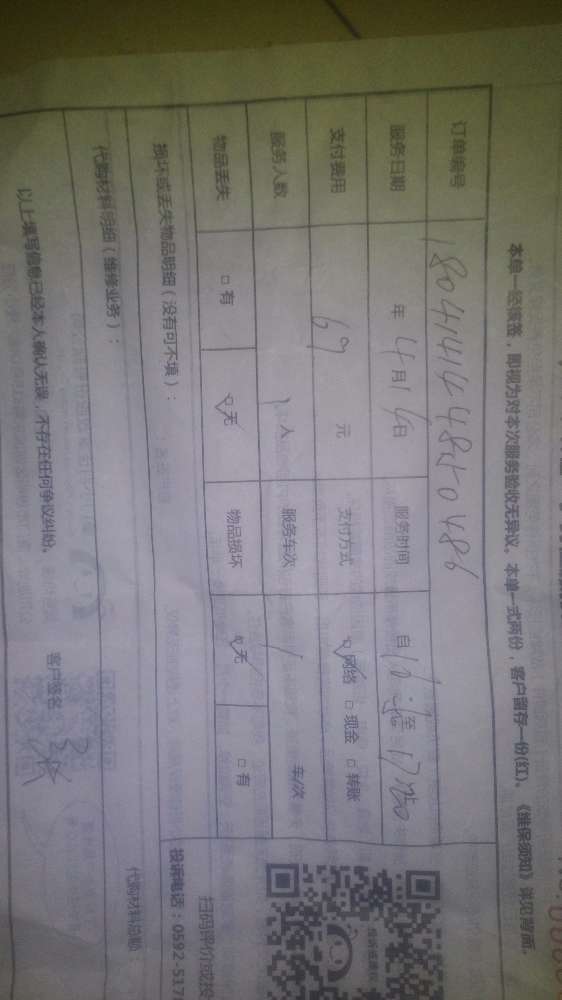 本单一经核签，即视为对本次服务验收无异议。本单一式两份，客户留存一份(红)。《维保须知》详见背面。
订单编号
服务日期 年 4月14日 服务时间 自 至
支付费用 69 元 支付方式 ☑网络 □现金 □转账
服务人数 1人 服务车次 1 车/次
物品丢失 □有 ☑无 物品损坏 ☑无 □有
损坏或丢失物品明细（没有可不填）：
投诉电话：0592-517
扫码评价或投
代购材料明细（维修业务）：
代购材料总额：
以上填写信息已经本人确认无误，不存在任何争议纠纷。
客户签名